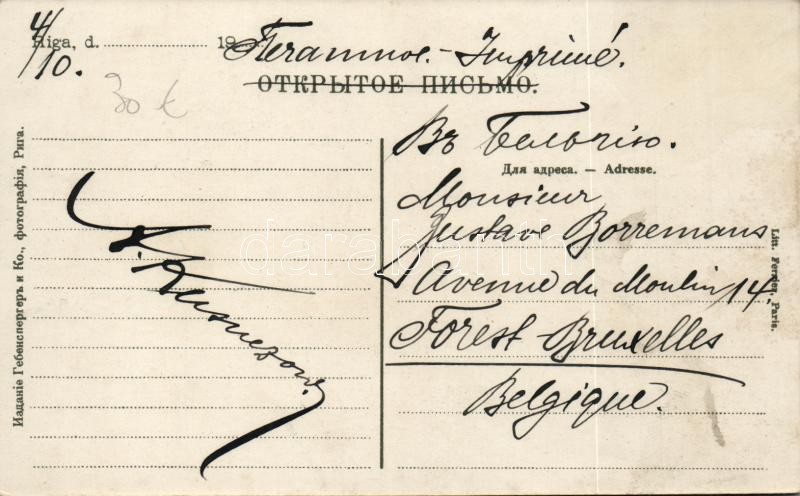 4/10.
Riga, d. 19
Печатное. - Imprimé.
ОТКРЫТОЕ ПИСЬМО.
30 €
Въ Бельгію.
Для адреса. — Adresse.
Monsieur
Gustave Borremans
Avenue du Moulin 14,
Forest-Bruxelles
Belgique.
Изданіе Гебенспергеръ и Ко., фотографія, Рига.
Litt. Paris.
darabanth